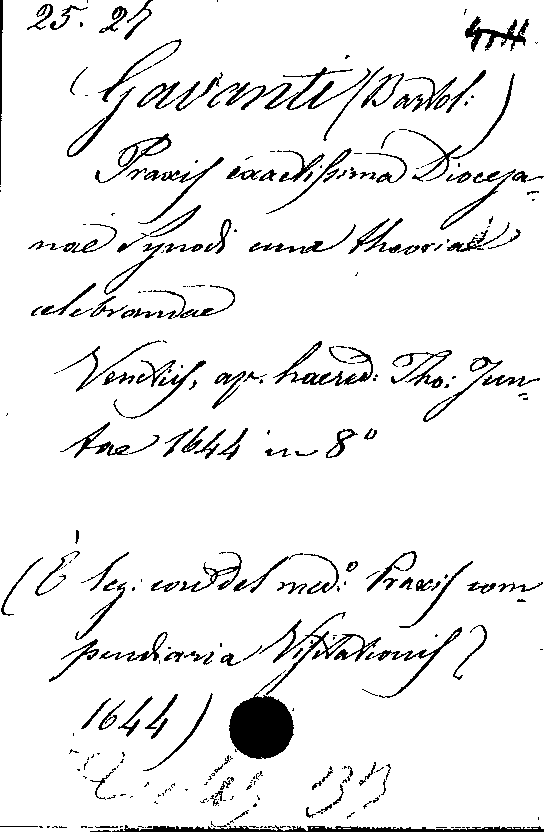 25. 27
Gavanti (Bartol:)
Praxis exactissima Diocesa-
nae Synodi cum theoria
celebrandae
Venetiis, ap. haered: Tho: Jun-
tae 1644 in 8º
(È leg: con del med:º Praxis com-
pendiaria Visitationis
1644)